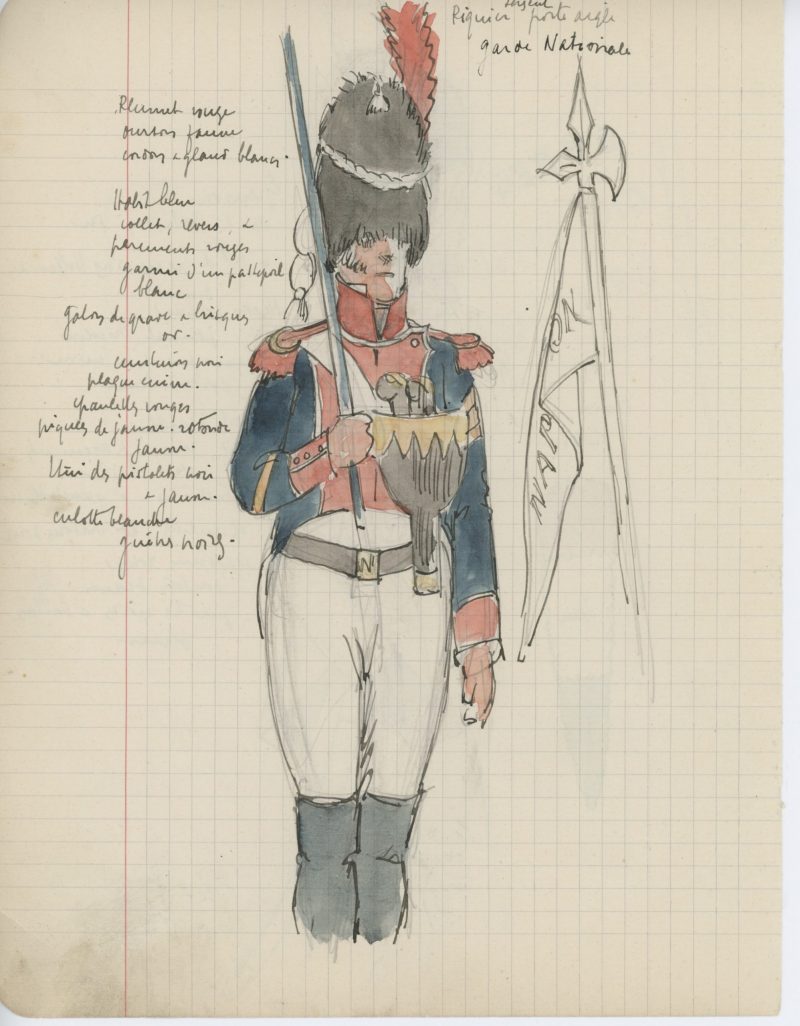 sergent
Piquier porte aigle
garde Nationale
Plumet rouge
ourson jaune
cordons & gland blancs.
Habit bleu
collet, revers, &
parements rouges
garni d'un passepoil
blanc
Galons de grade & brisques
or.
ceinturon noir
plaque cuivre.
épaulettes rouges
piquées de jaune.
jaune.
Etui des pistolets noir
& jaune.
culotte blanche
guêtres noires.
N
N